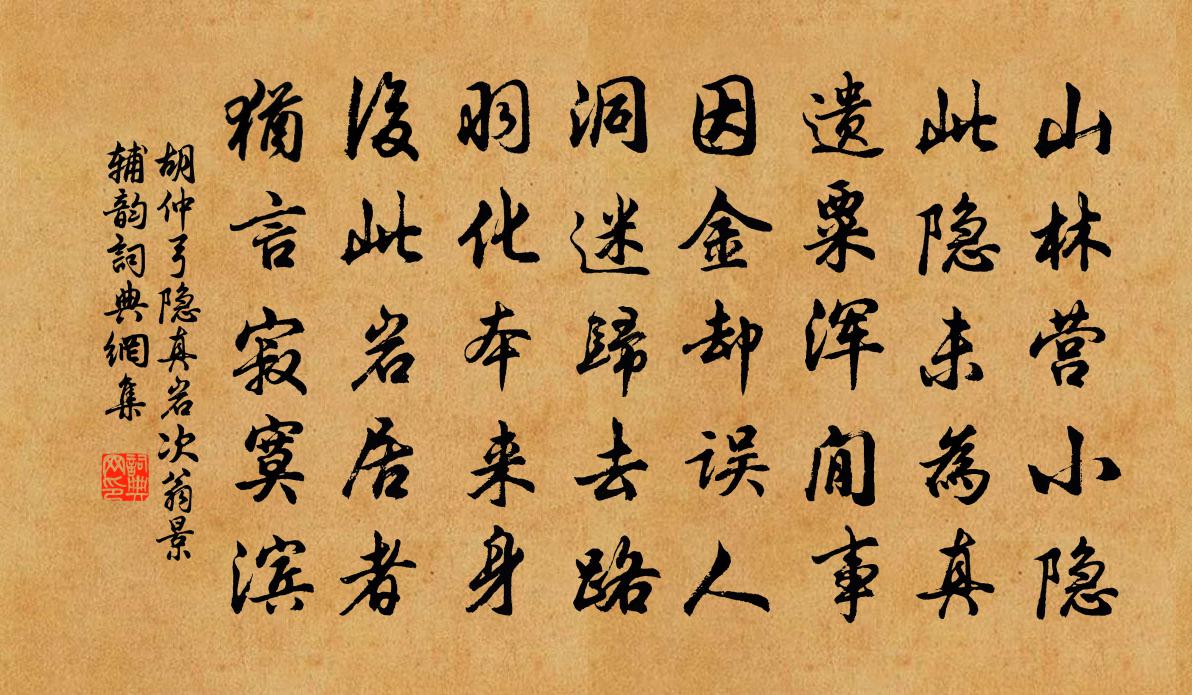 山林营小隐
此隐未為真
遗粟浑閒事
因金却误人
洞迷歸去路
羽化本来身
後此岩居者
犹言寂寞滨
胡仲弓隐真岩次翁景
辅韵詞典網集
詞典网印